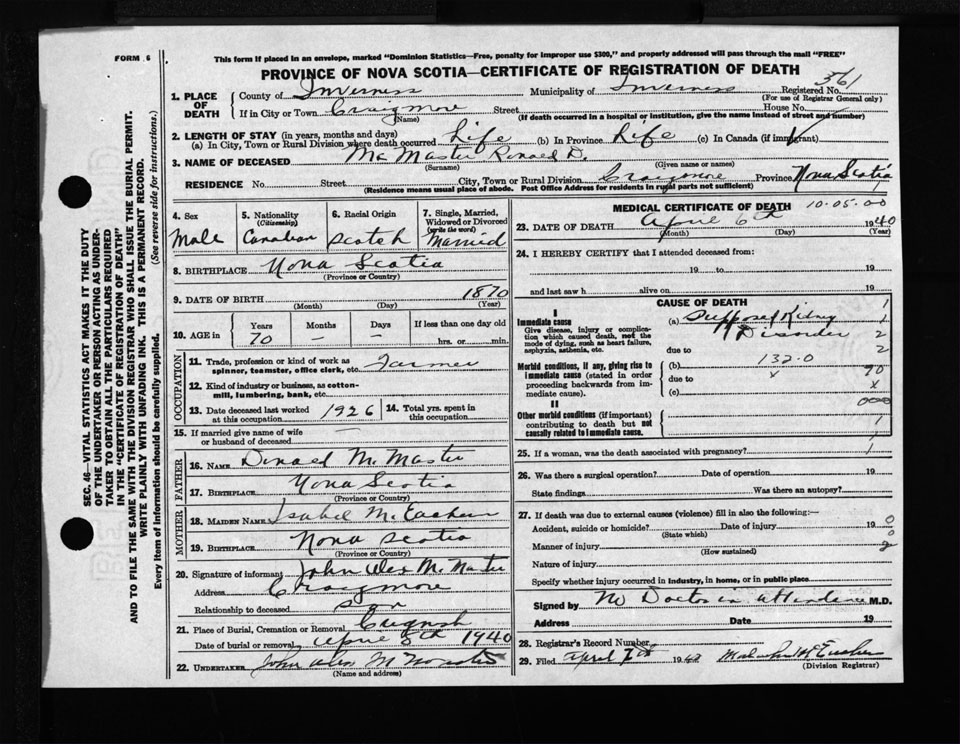 FORM 6
This form if placed in an envelope, marked "Dominion Statistics—Free, penalty for improper use $300," and properly addressed will pass through the mail "FREE"
PROVINCE OF NOVA SCOTIA—CERTIFICATE OF REGISTRATION OF DEATH
361
1. PLACE OF DEATH
County of Inverness Municipality of Inverness Registered No.
(For use of Registrar General only)
If in City or Town Craigmore Street House No.
(Name) (If death occurred in a hospital or institution, give the name instead of street and number)
2. LENGTH OF STAY (in years, months and days)
(a) In City, Town or Rural Division where death occurred Life (b) In Province Life (c) In Canada (if immigrant)
3. NAME OF DECEASED McMaster Ronald D.
(Surname) (Given name or names)
RESIDENCE No. Street City, Town or Rural Division Craigmore Province Nova Scotia
(Residence means usual place of abode. Post Office Address for residents in rural parts not sufficient)
4. Sex
Male
5. Nationality (Citizenship)
Canadian
6. Racial Origin
Scotch
7. Single, Married, Widowed or Divorced (write the word)
Married
8. BIRTHPLACE Nova Scotia
(Province or Country)
9. DATE OF BIRTH 1870
(Month) (Day) (Year)
10. AGE in Years Months Days If less than one day old
70 — — hrs. or min.
OCCUPATION
11. Trade, profession or kind of work as spinner, teamster, office clerk, etc. Farmer
12. Kind of industry or business, as cotton-mill, lumbering, bank, etc.
13. Date deceased last worked at this occupation 1926
14. Total yrs. spent in this occupation.
15. If married give name of wife or husband of deceased —
FATHER
16. NAME Donald McMaster
17. BIRTHPLACE Nova Scotia
(Province or Country)
MOTHER
18. MAIDEN NAME Isabel McEachern
19. BIRTHPLACE Nova Scotia
(Province or Country)
20. Signature of informant John Alex McMaster
Address Craigmore
Relationship to deceased son
21. Place of Burial, Cremation or Removal Creignish
Date of burial or removal April 8th 1940
22. UNDERTAKER John Alex McMaster
(Name and address)
MEDICAL CERTIFICATE OF DEATH 10.05.00
23. DATE OF DEATH April 6th 1940
(Month) (Day) (Year)
24. I HEREBY CERTIFY that I attended deceased from:
19 to 19
and last saw h alive on 19
CAUSE OF DEATH
I
Immediate cause
Give disease, injury or complication which caused death, not the mode of dying, such as heart failure, asphyxia, asthenia, etc.
(a) Supposed Kidney
Disorder
due to
Morbid conditions, if any, giving rise to immediate cause (stated in order proceeding backwards from immediate cause).
(b) 132.0
due to x
(c)
II
Other morbid conditions (if important) contributing to death but not causally related to immediate cause.
1
1
2
2
90
x
000
1
1
1
25. If a woman, was the death associated with pregnancy?
26. Was there a surgical operation? Date of operation 19
State findings Was there an autopsy?
27. If death was due to external causes (violence) fill in also the following:—
Accident, suicide or homicide? Date of injury 19 0
(State which) 0
Manner of injury
(How sustained)
Nature of injury
Specify whether injury occurred in industry, in home, or in public place
Signed by No Doctor in attendance M.D.
Address Date 19
28. Registrar's Record Number
29. Filed April 7th 1940
(Division Registrar)
SEC. 46—VITAL STATISTICS ACT MAKES IT THE DUTY
OF THE UNDERTAKER OR PERSON ACTING AS UNDER-
TAKER TO OBTAIN ALL THE PARTICULARS REQUIRED
IN THE "CERTIFICATE OF REGISTRATION OF DEATH"
AND TO FILE THE SAME WITH THE DIVISION REGISTRAR WHO SHALL ISSUE THE BURIAL PERMIT.
WRITE PLAINLY WITH UNFADING INK. THIS IS A PERMANENT RECORD.
Every item of information should be carefully supplied. (See reverse side for instructions.)